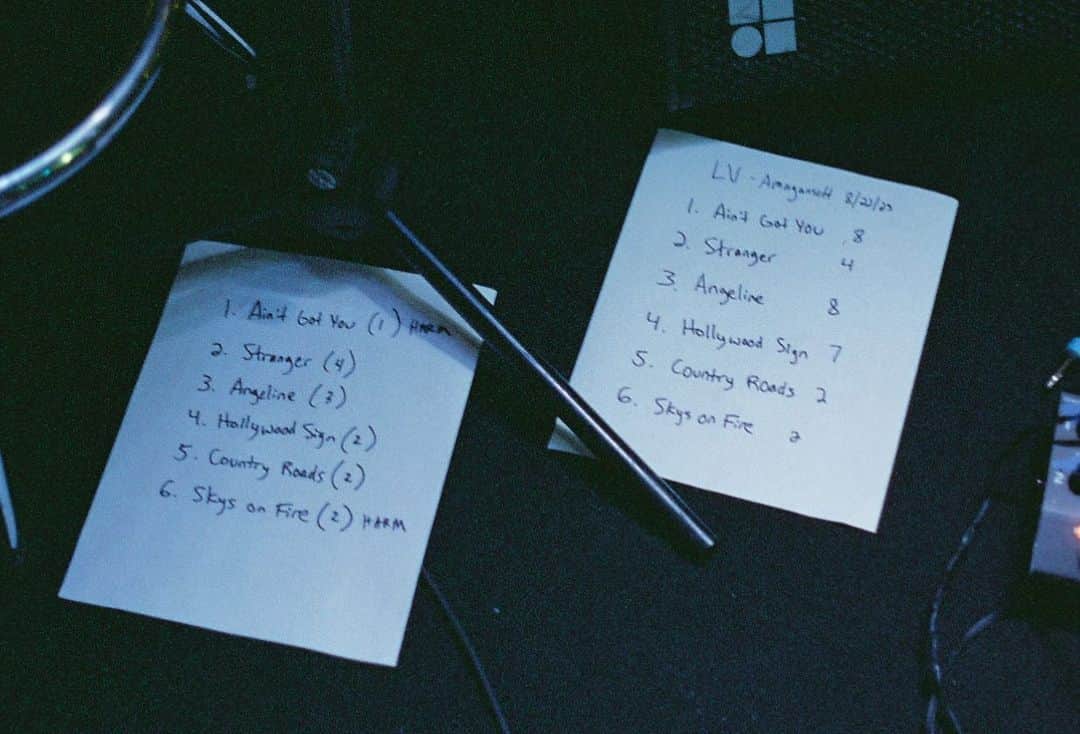 1. Ain't Got You (1) HARM
2. Stranger (4)
3. Angeline (3)
4. Hollywood Sign (2)
5. Country Roads (2)
6. Skys on Fire (2) HARM
LV - Amagansett 8/22/23
1. Ain't Got You 8
2. Stranger 4
3. Angeline 8
4. Hollywood Sign 7
5. Country Roads 2
6. Skys on Fire 2
2